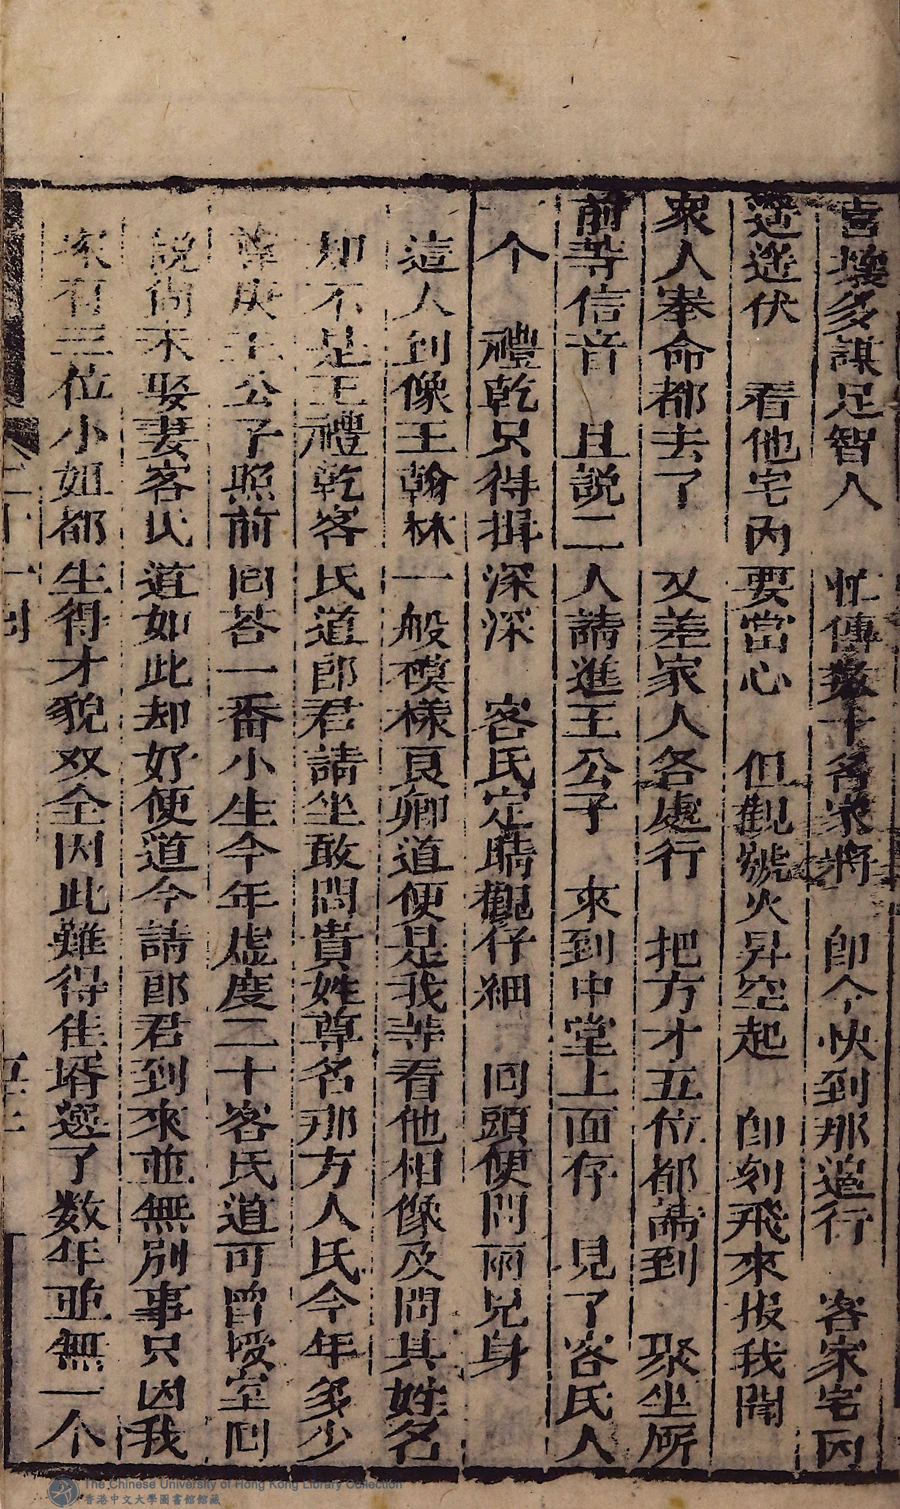 喜壞多謀足智人　忙傳數十名家將　即今快到那邊行　客家宅內
遮遮伏　看他宅內要當心　但觀號火昇空起　即刻飛來报我聞
衆人奉命都去了　又差家人各處行　把方才五位都請到　聚坐所
前等信音　且説二人請進王公子　來到中堂上面存　見了客氏人
个　禮乾只得揖深深　客氏定睛觀仔細　回頭便問兩兄身
這人到像王翰林一般模様良卿道便是我等看他相像及問其姓名
却不是王禮乾客氏道郎君請坐敢問貴姓尊名那方人氏今年多少
尊庚王公子照前回荅一番小生今年虛度二十客氏道可曾授室回
説尚未娶妻客氏道如此却好便道今請郎君到來並無别事只因我
家有三位小姐都生得才貌双全因此難得佳壻選了数年並無一个
The Chinese University of Hong Kong Library Collection
香港中文大學圖書館館藏